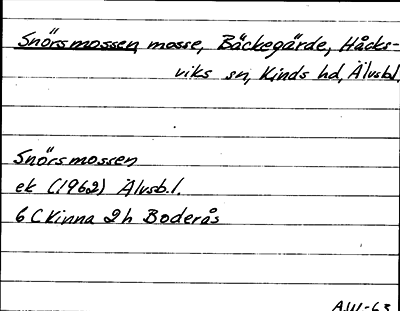 Snörsmossen, mosse, Bäckegärde, Håcks-
viks sn, Kinds hd, Älvsb.l.
Snörsmossen
ek (1962) Älvsb.l.
6 C Kinna 2h Boderås
AW-63